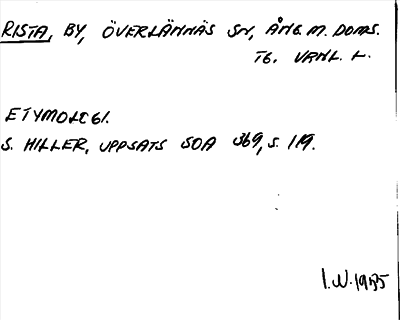 RISTA, BY, ÖVERLÄNNÄS SN, ÅNG. M. DOMS.
TG. VRNL. L.
ETYMOLOGI.
S. HILLER, UPPSATS SOA 369, S. 119.
I.W. 1935